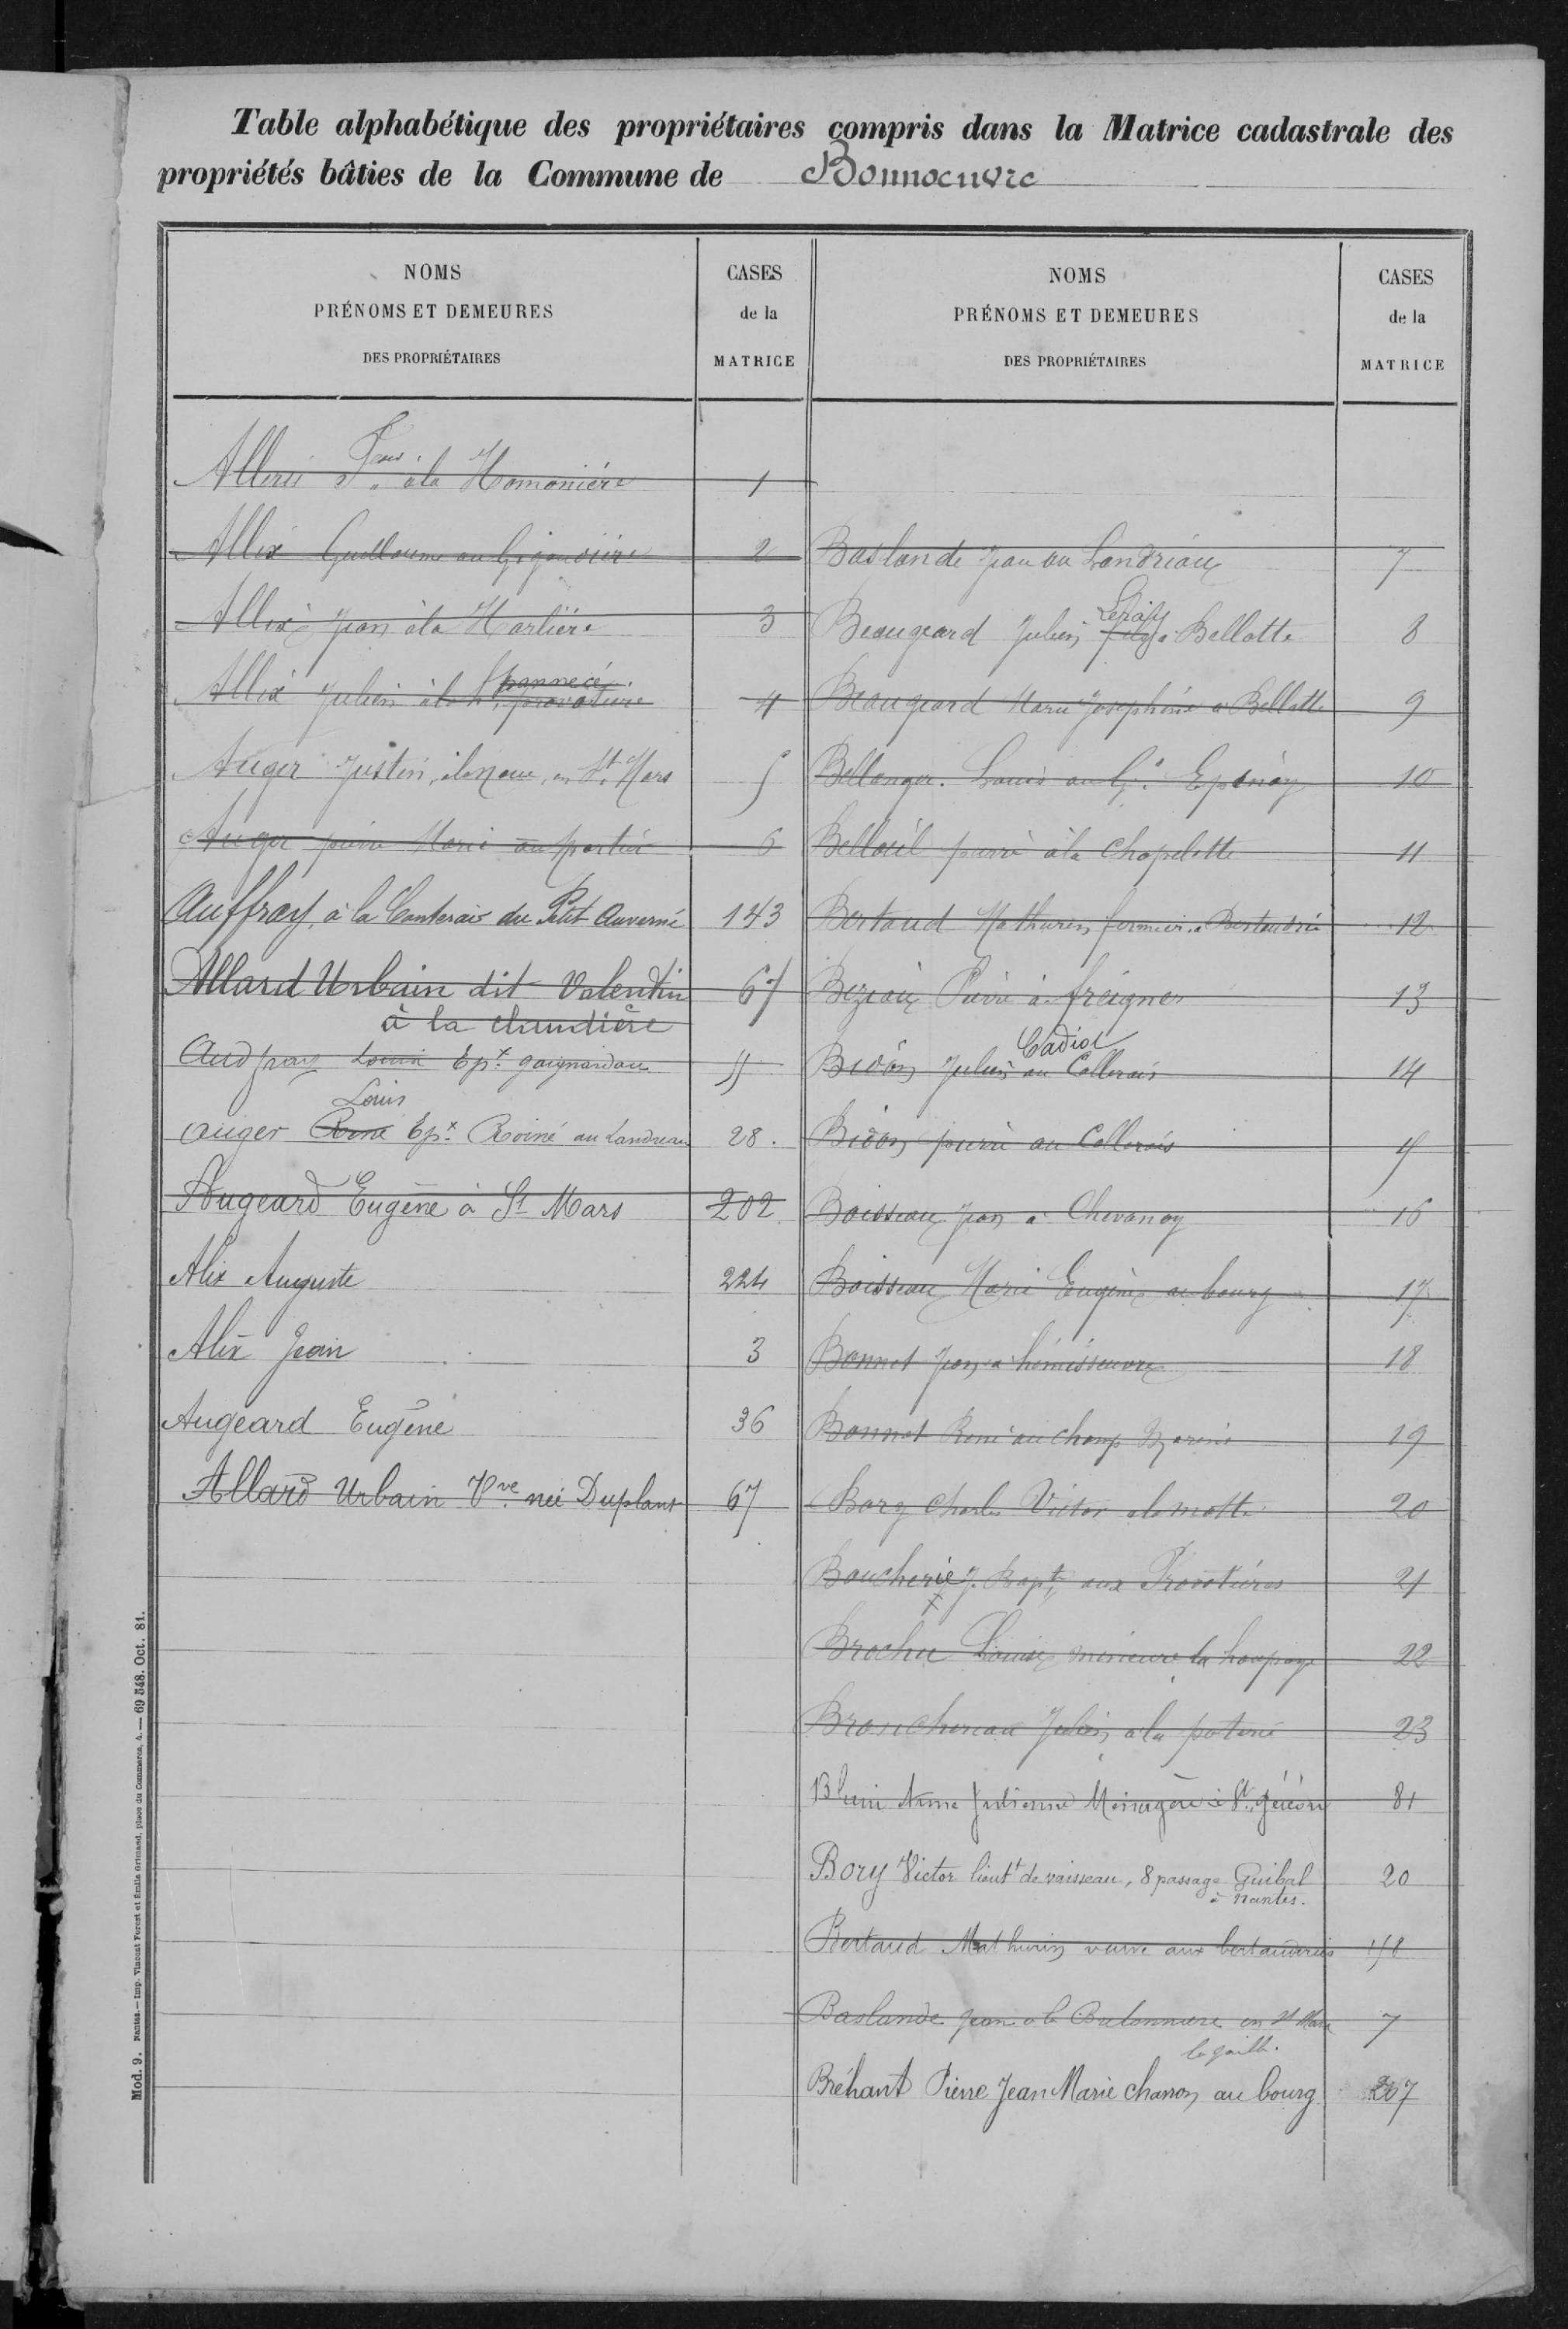 Table alphabétique des propriétaires compris dans la Matrice cadastrale des
propriétés bâties de la Commune de Bonnoeuvre
NOMS
PRÉNOMS ET DEMEURES
DES PROPRIÉTAIRES
CASES
de la
MATRICE
à la Homonière 1
Allix Guillaume 2
Allix Jean à la Harlière 3
pannecé
Allix Julien à la 4
Auger Justin, à la Noue, en St. Mars 5
Auger pierre Marie au 6
Auffray, à la Conterais du Petit Auverné 143
Allard Urbain dit Valentin 67
à la chundière
Louis Epx.
Louis
Auger Roiné Epx. Roiné au Landreau 28.
Augeard Eugène à St Mars 202
Alix Auguste 224
Alix Jean 3
Augeard Eugène 36
Allard Urbain Vve née Duplant 67
NOMS
PRÉNOMS ET DEMEURES
DES PROPRIÉTAIRES
CASES
de la
MATRICE
Baslande Jean au Landriau 7
Beaugeard Julien a Bellotte 8
Beaugeard Marie Joséphine a Bellotte 9
Bellanger. Louis au Gd. Epinay 10
Belloeil pierre à la Chapelette 11
Bertaud Mathurin, fermier a Bertaudrie 12
Beziau Pierre à freigné 13
Cadiot
Bidon Julien au Collerais 14
Bidon pierre au Collerais
Boisseau Jean a Chevanay 16
Boisseau Marie Eugène au bourg 17
Bonnet Jean a 18
Bonnet René au champ 19
Bory Charles Victor a la motte 20
Boucherie J. Bapte, aux Provotières 21
Brochu Louise mineure la 22
Branchereau Julien, à la poterie 23
Anne Julienne Ménagère à St. Géréon 81
Bory Victor lieutt de vaisseau, 8 passage Guibal 20
à Nantes.
Bertaud Mathurin veuve aux bertauderies
Baslande Jean a la Bretonnière en St Mars 7
la jaille.
Bréhant Pierre Jean Marie charron au bourg 267
Mod. 9. Nantes.—Imp. Vincent Forest et Émile Grimaud, place du Commerce, 4.—69 548. Oct. 81.